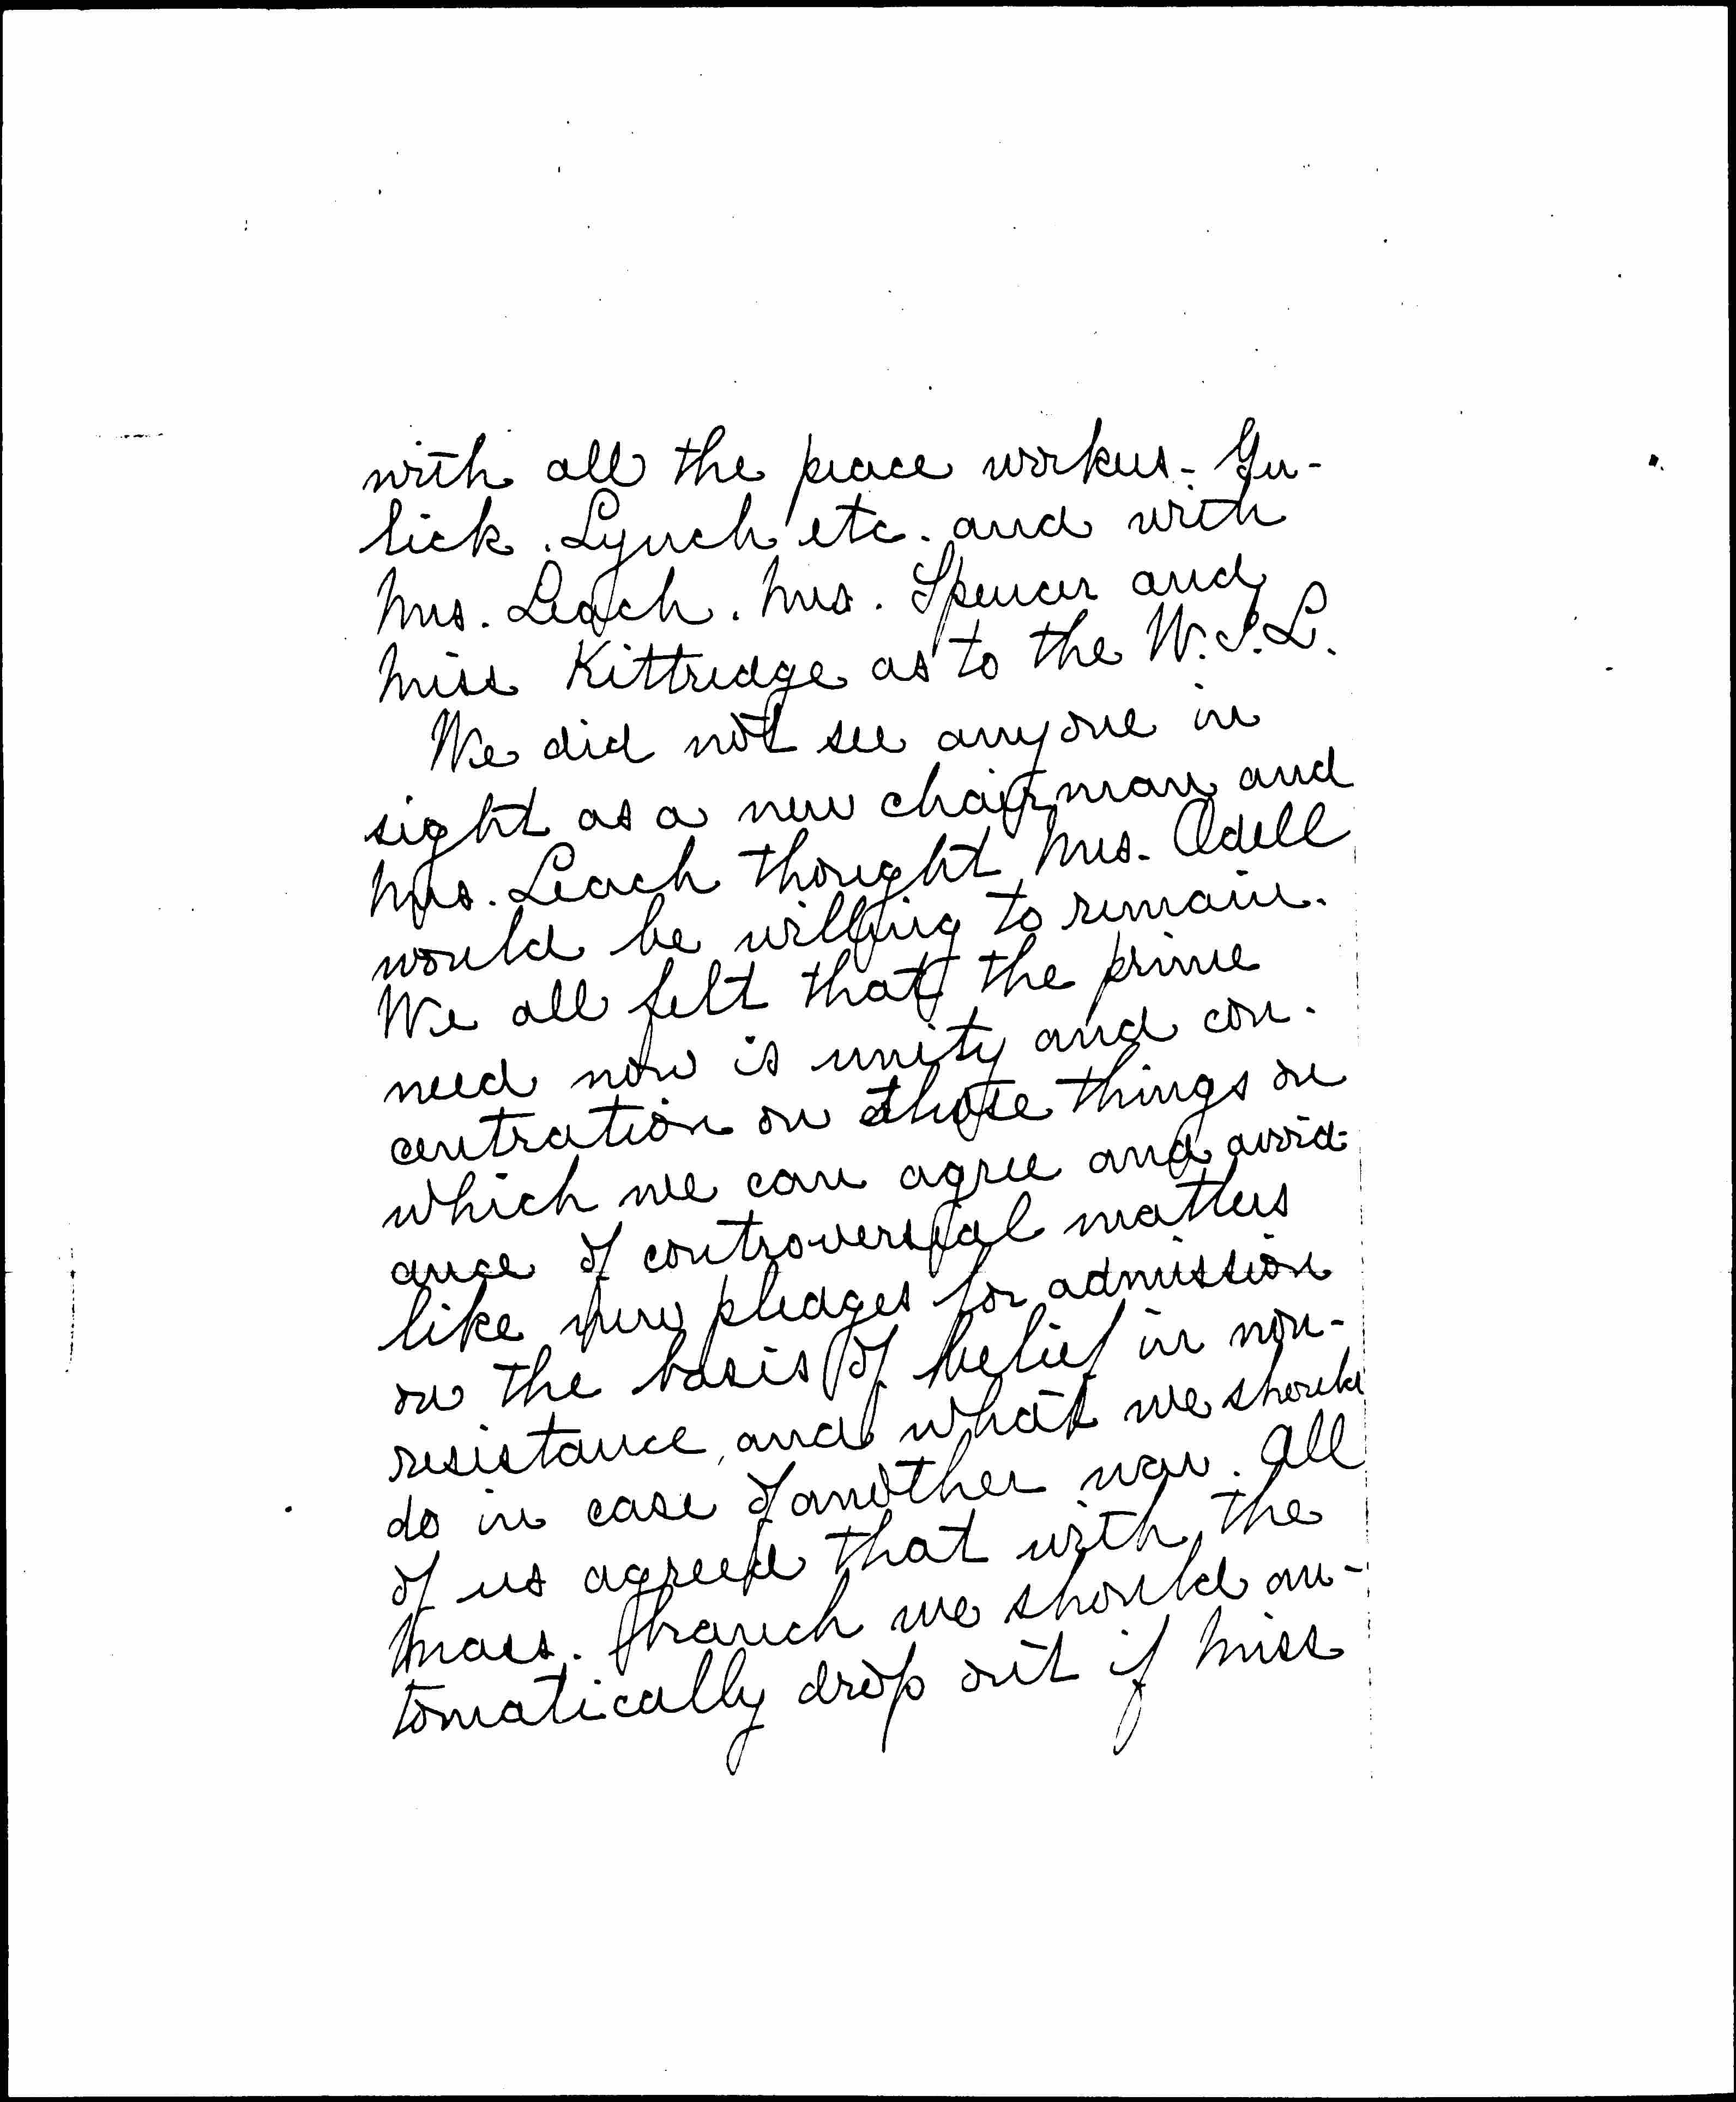 with all the peace workers - Gu-
lick. Lynch etc. and with
Mrs. Leach. Mrs. Spencer and
Miss Kittredge as to the W.I.L.
We did not see anyone in
sight as a new chairman and
Mrs. Leach thought Mrs. Odell
would be willing to remain.
We all felt that the prime
need now is unity and con-
centration on those things on
which we can agree and avoid-
ance of controversial matters
like new pledges for admission
on the basis of belief in non-
resistance, and what we should
do in case of another war. All
of us agreed that with the
Mass. branch we should au-
tomatically drop out if Miss